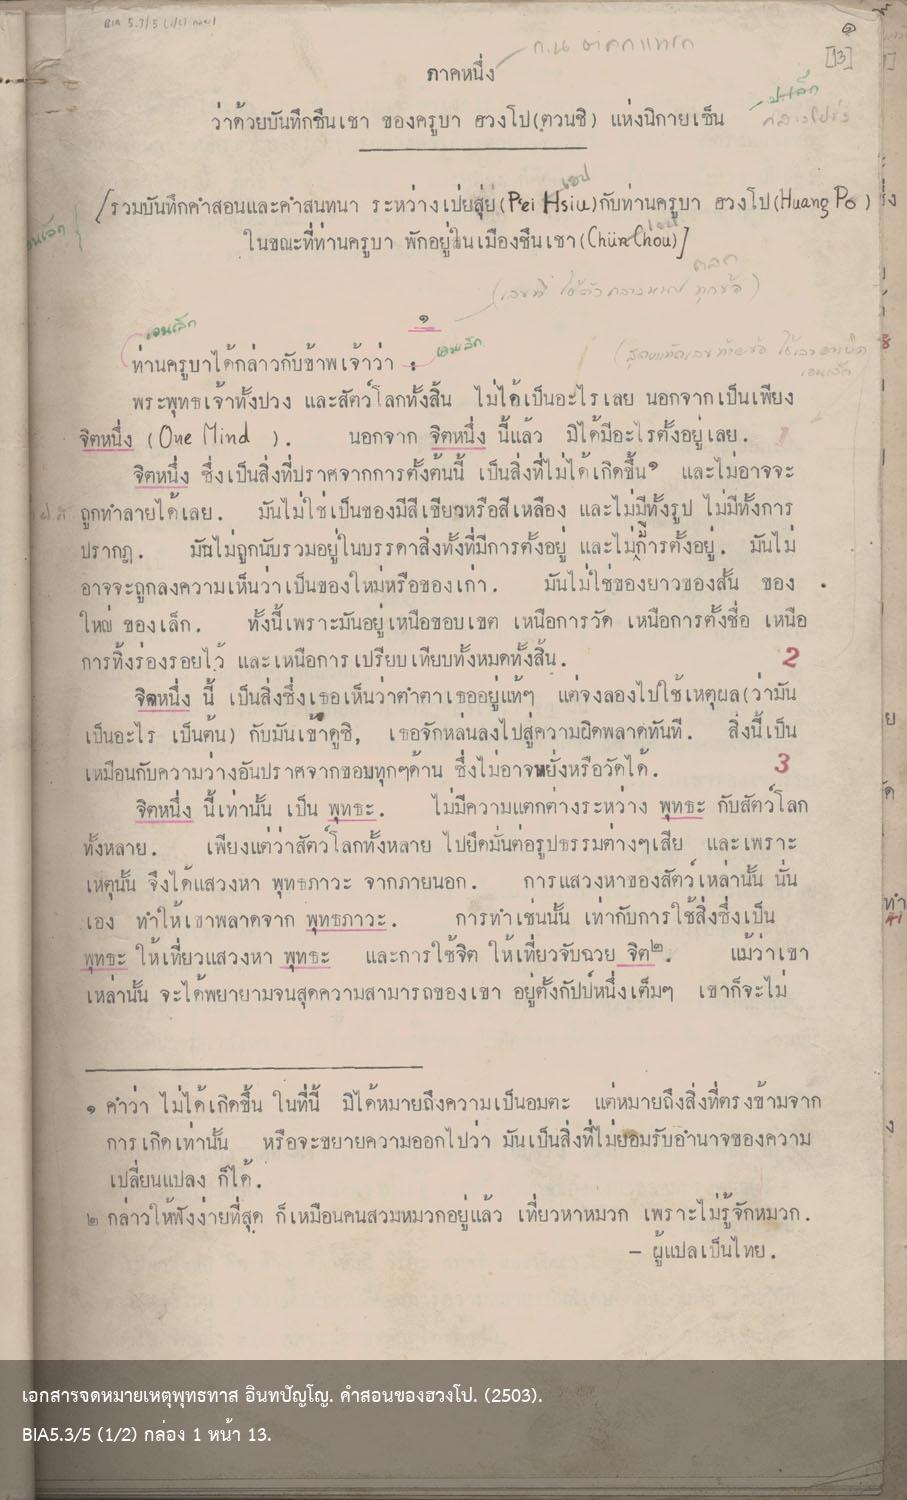 BIA 5.3/5 (1/2) กล่อง1
๑
[13]
ภาคหนึ่ง
ว่าด้วยบันทึกชึนเชา ของครูบา ฮวงโป(ตวนชิ) แห่งนิกายเซ็น
[รวมบันทึกคำสอนและคำสนทนา ระหว่างเปยสุ่ย(P'ei Hsiu)กับท่านครูบา ฮวงโป(Huang Po)
ในขณะที่ท่านครูบา พักอยู่ในเมืองชึนเชา(Chün Chou)]
(เลขที่ ใช้ตัวกลางหมด ทุกข้อ)
๑
เอนเล็ก
เอนเล็ก
ท่านครูบาได้กล่าวกับข้าพเจ้าว่า :
พระพุทธเจ้าทั้งปวง และสัตว์โลกทั้งสิ้น ไม่ได้เป็นอะไรเลย นอกจากเป็นเพียง
จิตหนึ่ง (One Mind ). นอกจาก จิตหนึ่ง นี้แล้ว มิได้มีอะไรตั้งอยู่เลย. 1
จิตหนึ่ง ซึ่งเป็นสิ่งที่ปราศจากการตั้งต้นนี้ เป็นสิ่งที่ไม่ได้เกิดขึ้น๑ และไม่อาจจะ
ถูกทำลายได้เลย. มันไม่ใช่เป็นของมีสีเขียวหรือสีเหลือง และไม่มีทั้งรูป ไม่มีทั้งการ
ปรากฏ. มันไม่ถูกนับรวมอยู่ในบรรดาสิ่งทั้งที่มีการตั้งอยู่ และไม่มีการตั้งอยู่. มันไม่
อาจจะถูกลงความเห็นว่าเป็นของใหม่หรือของเก่า. มันไม่ใช่ของยาวของสั้น ของ
ใหญ่ ของเล็ก. ทั้งนี้เพราะมันอยู่เหนือขอบเขต เหนือการวัด เหนือการตั้งชื่อ เหนือ
การทิ้งร่องรอยไว้ และเหนือการเปรียบเทียบทั้งหมดทั้งสิ้น. 2
จิตหนึ่ง นี้ เป็นสิ่งซึ่งเธอเห็นว่าตำตาเธออยู่แท้ๆ แต่จงลองไปใช้เหตุผล(ว่ามัน
เป็นอะไร เป็นต้น) กับมันเข้าดูซิ, เธอจักหล่นลงไปสู่ความผิดพลาดทันที. สิ่งนี้เป็น
เหมือนกับความว่างอันปราศจากขอบทุกๆด้าน ซึ่งไม่อาจหยั่งหรือวัดได้. 3
จิตหนึ่ง นี้เท่านั้น เป็น พุทธะ. ไม่มีความแตกต่างระหว่าง พุทธะ กับสัตว์โลก
ทั้งหลาย. เพียงแต่ว่าสัตว์โลกทั้งหลาย ไปยึดมั่นต่อรูปธรรมต่างๆเสีย และเพราะ
เหตุนั้น จึงได้แสวงหา พุทธภาวะ จากภายนอก. การแสวงหาของสัตว์เหล่านั้น นั่น
เอง ทำให้เขาพลาดจาก พุทธภาวะ. การทำเช่นนั้น เท่ากับการใช้สิ่งซึ่งเป็น
พุทธะ ให้เที่ยวแสวงหา พุทธะ และการใช้จิต ให้เที่ยวจับฉวย จิต๒. แม้ว่าเขา
เหล่านั้น จะได้พยายามจนสุดความสามารถของเขา อยู่ตั้งกัปป์หนึ่งเต็มๆ เขาก็จะไม่
๑ คำว่า ไม่ได้เกิดขึ้น ในที่นี้ มิได้หมายถึงความเป็นอมตะ แต่หมายถึงสิ่งที่ตรงข้ามจาก
การเกิดเท่านั้น หรือจะขยายความออกไปว่า มันเป็นสิ่งที่ไม่ยอมรับอำนาจของความ
เปลี่ยนแปลง ก็ได้.
๒ กล่าวให้ฟังง่ายที่สุด ก็เหมือนคนสวมหมวกอยู่แล้ว เที่ยวหาหมวก เพราะไม่รู้จักหมวก.
— ผู้แปลเป็นไทย.
เอกสารจดหมายเหตุพุทธทาส อินทปัญโญ. คำสอนของฮวงโป. (2503).
BIA5.3/5 (1/2) กล่อง 1 หน้า 13.